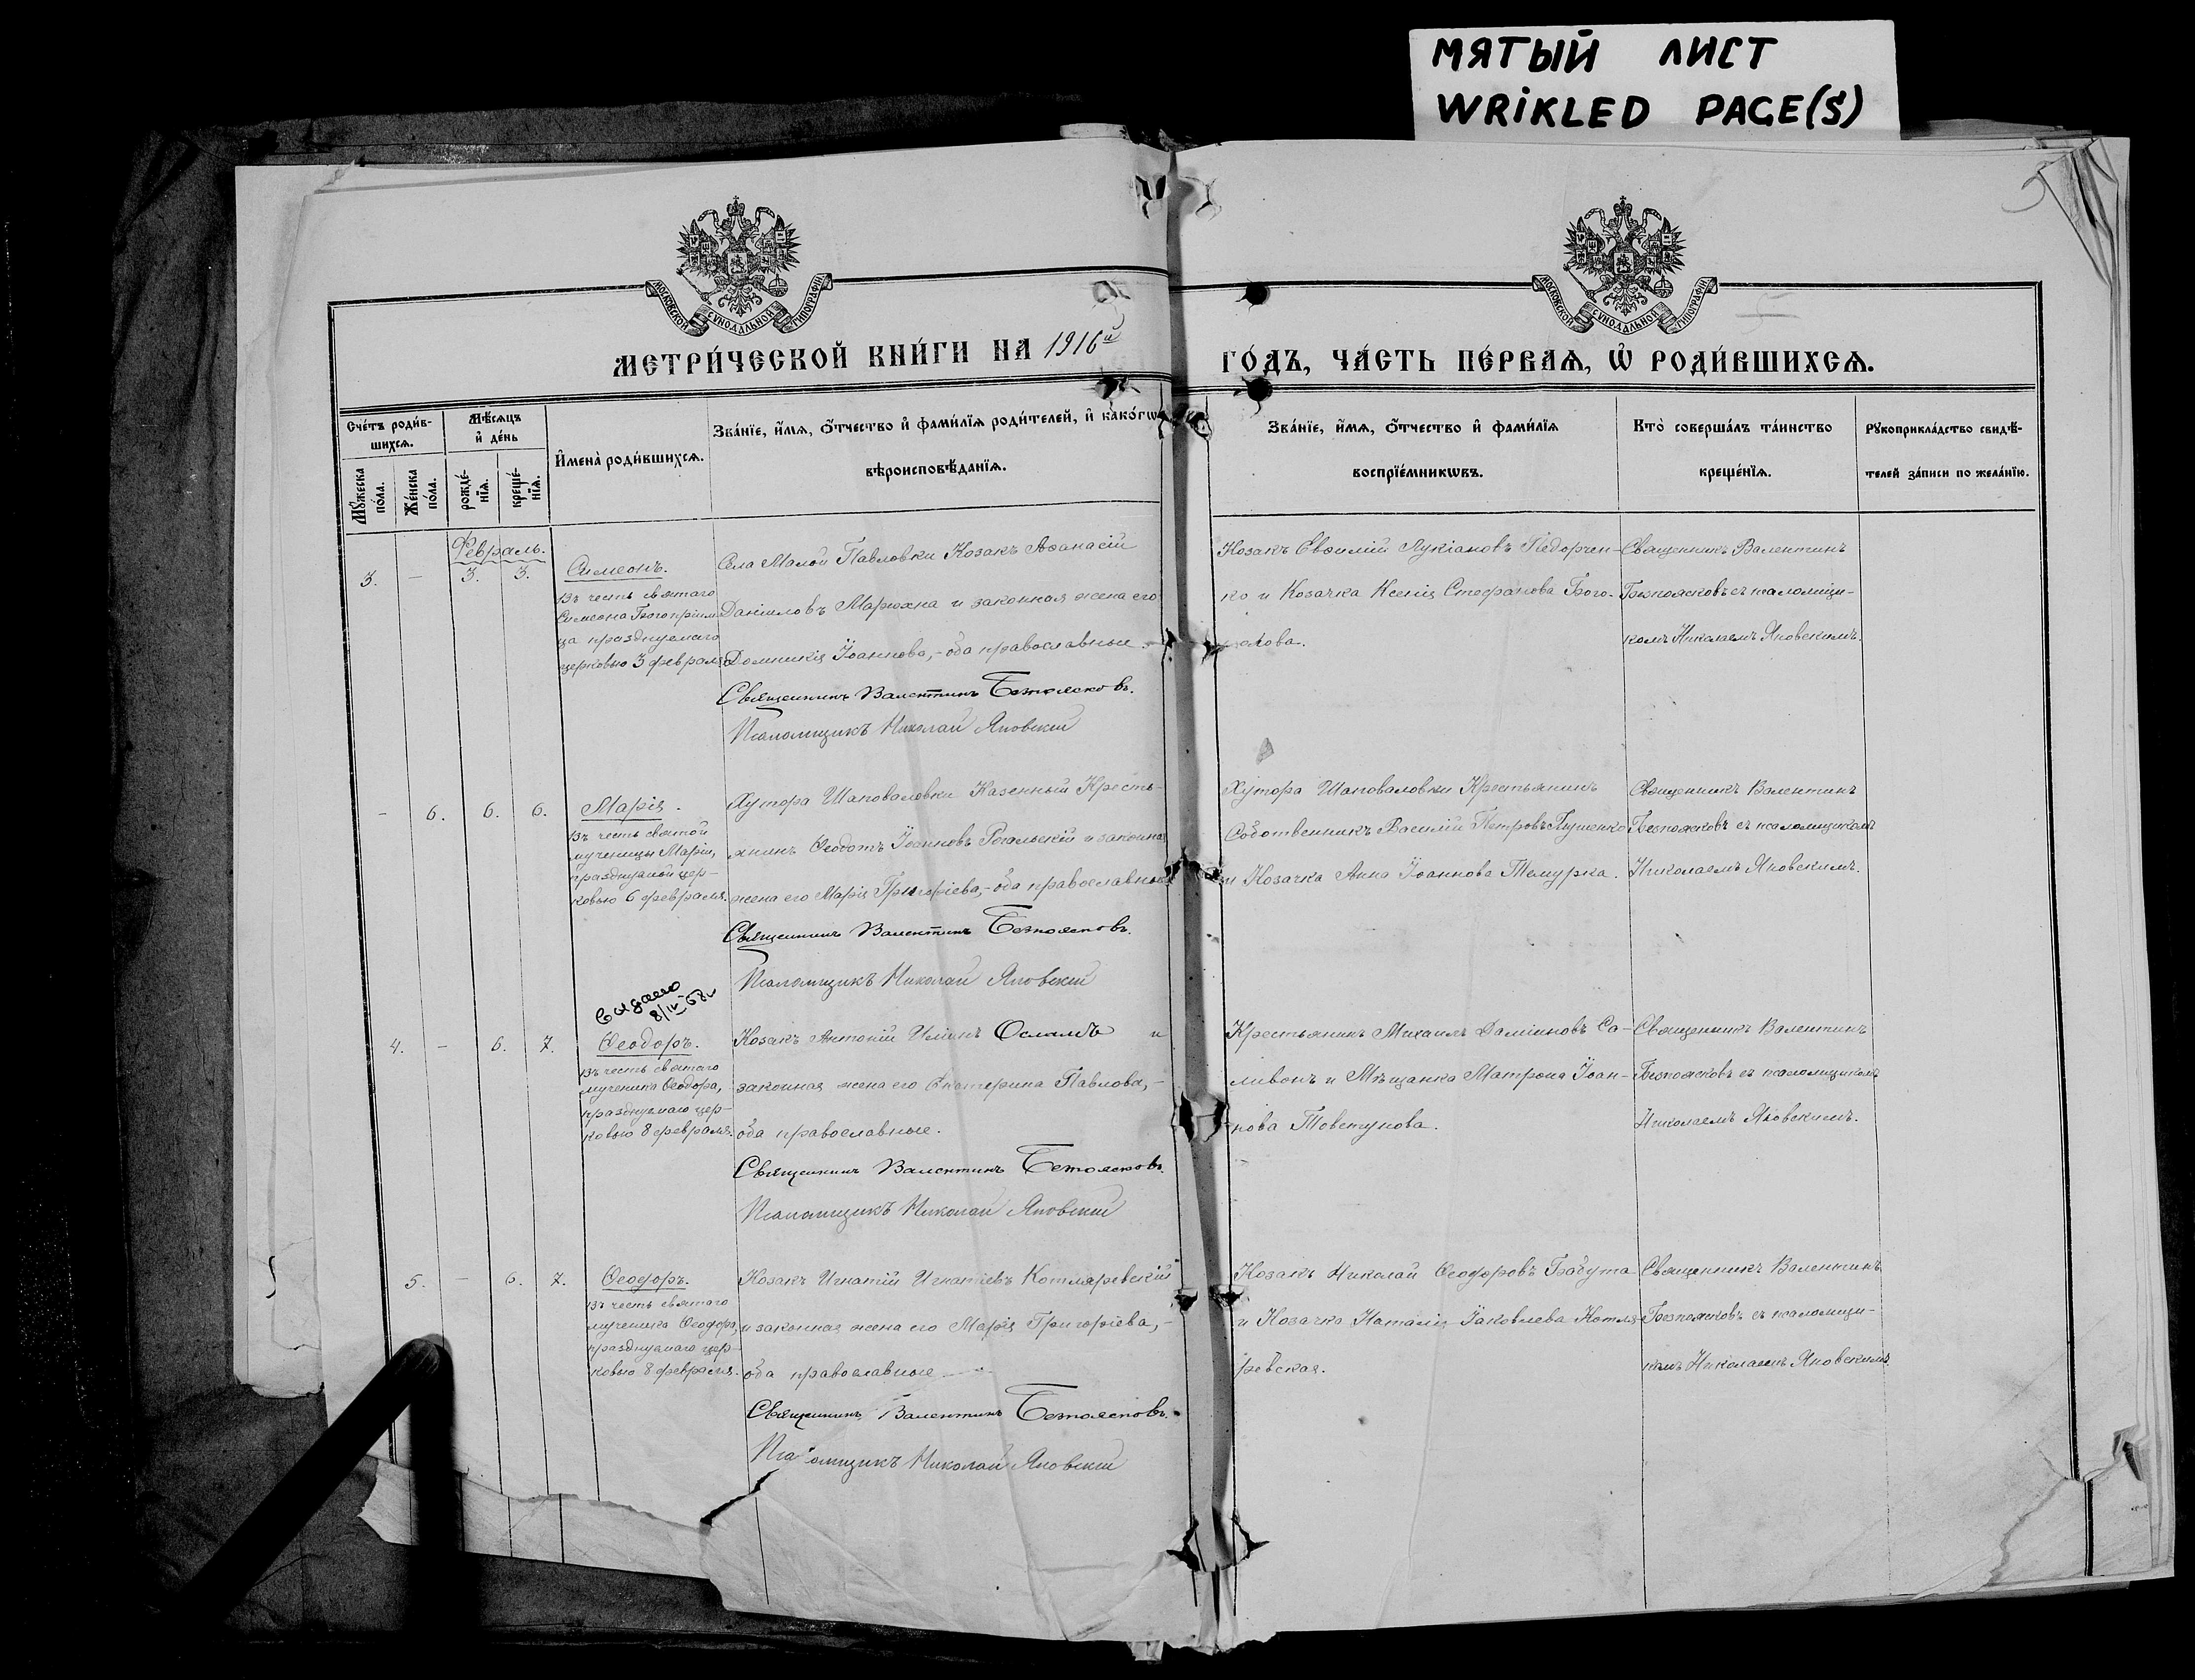 МЯТЫЙ ЛИСТ
WRIKLED PAGE(S)
МОСКОВСКОЙ СУНОДАЛЬНОЙ ТИПОГРАФІИ
МОСКОВСКОЙ СУНОДАЛЬНОЙ ТИПОГРАФІИ
МЕТРИ́ЧЕСКОЙ КНИ́ГИ НА 1916й ГО́ДЪ, ЧА́СТЬ ПЕ́РВАѦ, Ѡ҆ РОДИ́ВШИХСѦ.
Сче́тъ роди́в-
шихсѧ.
Мꙋ́жеска по́ла.
Же́нска по́ла.
Мѣ́сѧцъ и҆ де́нь
рожде́-
нїѧ.
креще́-
нїѧ.
И҆мена̀ роди́вшихсѧ.
Зва́нїе, и҆́мѧ, ѻ҆́тчество и҆ фами́лїѧ роди́телей, и҆ како́гѡ
вѣроисповѣ́данїѧ.
Зва́нїе, и҆́мѧ, ѻ҆́тчество и҆ фами́лїѧ
воспрїе́мникѡвъ.
Кто̀ соверша́лъ та́инство
креще́нїѧ.
Рꙋкоприкла́дство свидѣ́-
телей за́писи по жела́нїю.
Февраль.
3. - 3. 3.
Симеонъ.
Въ честь святаго
Симеона Богопріим
ца празднуемаго
церковью 3 февраля
Села Малой Павловки Козакъ Аѳанасій
Даніиловъ Марюхна и законная жена его
Домникія Іоаннова,- оба православные.
Священникъ Валентинъ Безпоясковъ.
Псаломщикъ Николай Яновскій
Козакъ Евѳимій Лукіановъ Педорчен-
ко и Козачка Ксенія Стефанова Бого-
Священникъ Валентинъ
Безпоясковъ съ псаломщи-
комъ Николаемъ Яновскимъ.
- 6. 6. 6.
Марія.
Въ честь святой
мученицы Маріи,
празднуемой цер-
ковью 6 февраля.
Хутора Шаповаловки Казенный Кресть-
янинъ Ѳеодотъ Іоанновъ Рогальскій и законная
жена его Марія Григоріева,- оба православные
Священникъ Валентинъ Безпоясковъ.
Псаломщикъ Николай Яновскій
Хутора Шаповаловки Крестьянинъ
Собственникъ Василій Петровъ
и Козачка Анна Іоаннова Темурка.
Священникъ Валентинъ
Безпоясковъ съ псаломщикомъ
Николаемъ Яновскимъ.
Выдано
8/IV 58
4. - 6. 7.
Ѳеодоръ.
Въ честь святаго
мученика Ѳеодора,
празднуемаго цер-
ковью 8 февраля.
Козакъ Антоній Иліинъ Осламъ и
законная жена его Екатерина Павлова,-
оба православные.
Священникъ Валентинъ Безпоясковъ.
Псаломщикъ Николай Яновскій
Крестьянинъ Михаилъ Даміановъ Са-
ливонъ и Мѣщанка Матрона Іоан-
нова Товстунова.
Священникъ Валентинъ
Безпоясковъ съ псаломщикомъ
Николаемъ Яновскимъ.
5. - 6. 7.
Ѳеодоръ.
Въ честь святаго
мученика Ѳеодора,
празднуемаго цер-
ковью 8 февраля.
Козакъ Игнатій Игнатіевъ Котляревскій
и законная жена его Марія Григоріева,-
оба православные
Священникъ Валентинъ Безпоясковъ.
Псаломщикъ Николай Яновскій
Козакъ Николай Ѳеодоровъ Бабута
и Козачка Наталія Іаковлева Котля-
ревская.
Священникъ Валентинъ
Безпоясковъ съ псаломщи-
комъ Николаемъ Яновскимъ